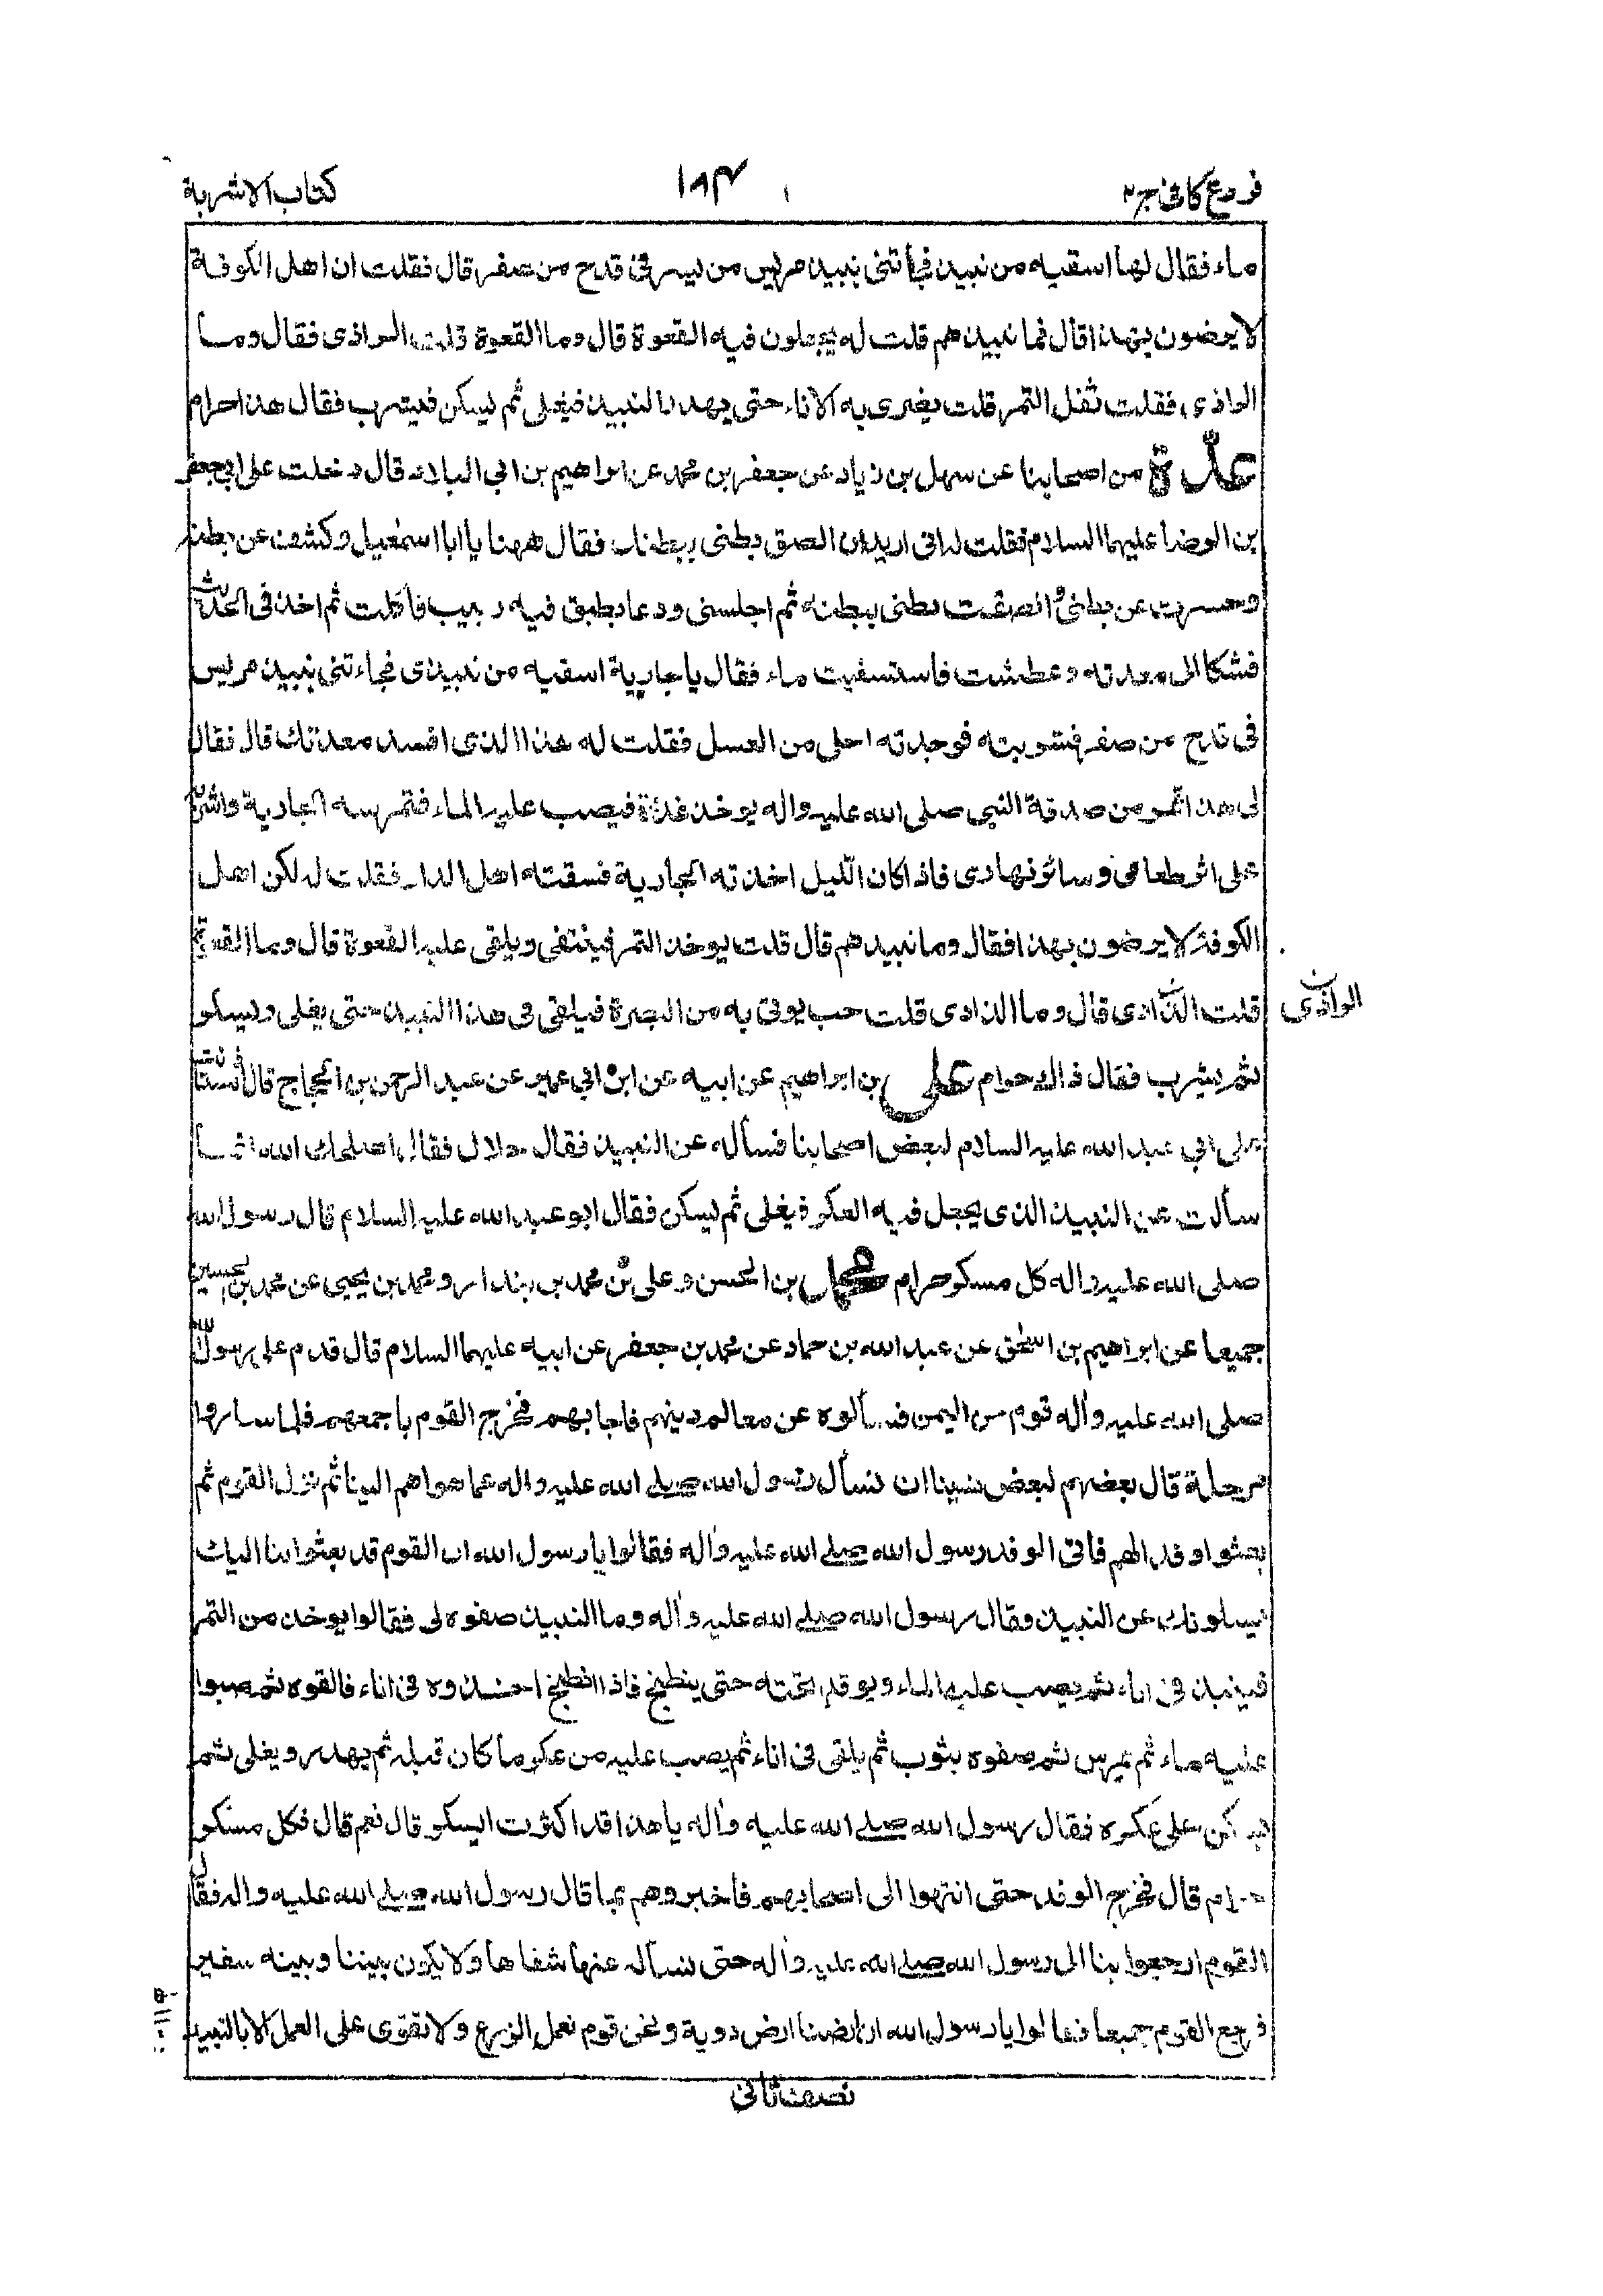 فروع كافى ج٢
١٩٣
كتاب الاشربة
ماء فقال لها اسقيه من نبيذ فجأتنى بنبيذ مريس من بسر فى قدح من صفر قال فقلت ان اهل الكوفة
لا يرضون بهذا قال فما نبيذهم قلت له يجعلون فيه القعوة قال وما القعوة قلت الداذى فقال وما
الداذى فقلت ثفل التمر قلت يضرى به الاناء حتى يهدر النبيذ فيغلى ثم يسكن فيشرب فقال هذا حرام
عدة من اصحابنا عن سهل بن زياد عن جعفر بن محمد عن ابراهيم بن ابي البلاد قال دخلت على ابيجعفر
بن الرضا عليهما السلام فقلت له انى اريد ان الصق بطنى ببطنك فقال ههنا يا ابا اسمعيل وكشف عن بطنه
وحسرت عن بطنى والصقت بطنى ببطنه ثم اجلسنى ودعا بطبق فيه زبيب فاكلت ثم اخذ فى الحديث
فشكا الى معدته وعطشت فاستسقيت ماء فقال يا جارية اسقيه من نبيذى فجاءتنى بنبيذ مريس
فى قدح من صفر فشربته فوجدته احلى من العسل فقلت له هذا الذى افسد معدتك قال فقال
لى هذا تمر من صدقة النبى صلى الله عليه واله يوخذ غدوة فيصب عليه الماء فتمرسه الجارية واشربه
على اثر طعامى وسائر نهارى فاذا كان الليل اخذته الجارية فسقته اهل الدار فقلت له لكن اهل
الكوفة لا يرضون بهذا فقال وما نبيذهم قال قلت يوخذ التمر فينقى ويلقى عليه القعوة قال وما القعوة
قلت الذادى قال وما الذادى قلت حب يوتى به من البصرة فيلقى فى هذا النبيذ حتى يغلى ويسكر
الداذى
ثم يشرب فقال ذاك حرام على بن ابراهيم عن ابيه عن ابن ابي عمير عن عبد الرحمن بن الحجاج قال استاذنت
على ابي عبد الله عليه السلام لبعض اصحابنا فسأله عن النبيذ فقال حلال فقال اصلحك الله انما
سألت عن النبيذ الذى يجعل فيه العكر فيغلى ثم يسكن فقال ابو عبد الله عليه السلام قال رسول الله
صلى الله عليه واله كل مسكر حرام محمد بن الحسن وعلى بن محمد بن بندار ومحمد بن يحيى عن محمد بن الحسين
جميعا عن ابراهيم بن اسحق عن عبد الله بن حماد عن محمد بن جعفر عن ابيه عليهما السلام قال قدم على رسول الله
صلى الله عليه واله قوم من اليمن فسألوه عن معالم دينهم فاجابهم فخرج القوم باجمعهم فلما ساروا
مرحلة قال بعضهم لبعض نسينا ان نسأل رسول الله صلى الله عليه واله عما هو اهم الينا ثم نزل القوم ثم
بعثوا وفدا لهم فاتى الوفد رسول الله صلى الله عليه واله فقالوا يا رسول الله ان القوم قد بعثوا بنا اليك
يسلونك عن النبيذ وقال رسول الله صلى الله عليه واله وما النبيذ صفوه لى فقالوا يوخذ من التمر
فينبذ فى اناء ثم يصب عليه الماء ويوقد تحته حتى ينطبخ فاذا انطبخ اخذوه فى اناء فالقوه ثم صبوا
عليه ماء ثم يمرس ثم صفوه بثوب ثم يلقى فى اناء ثم يصب عليه من عكر ما كان قبله ثم يهدر ويغلى ثم
يسكن على عكره فقال رسول الله صلى الله عليه واله يا هذا قد اكثرت ايسكر قال نعم قال فكل مسكر
حرام قال فخرج الوفد حتى انتهوا الى اصحابهم فاخبروهم بما قال رسول الله صلى الله عليه واله فقال
القوم ارجعوا بنا الى رسول الله صلى الله عليه واله حتى نسأله عنها شفاها ولا يكون بيننا وبينه سفير
فرجع القوم جميعا فقالوا يا رسول الله ان ارضنا ارض دوية ونحن قوم نعمل الزرع ولا نقوى على العمل الا بالنبيذ
نصف ثانى